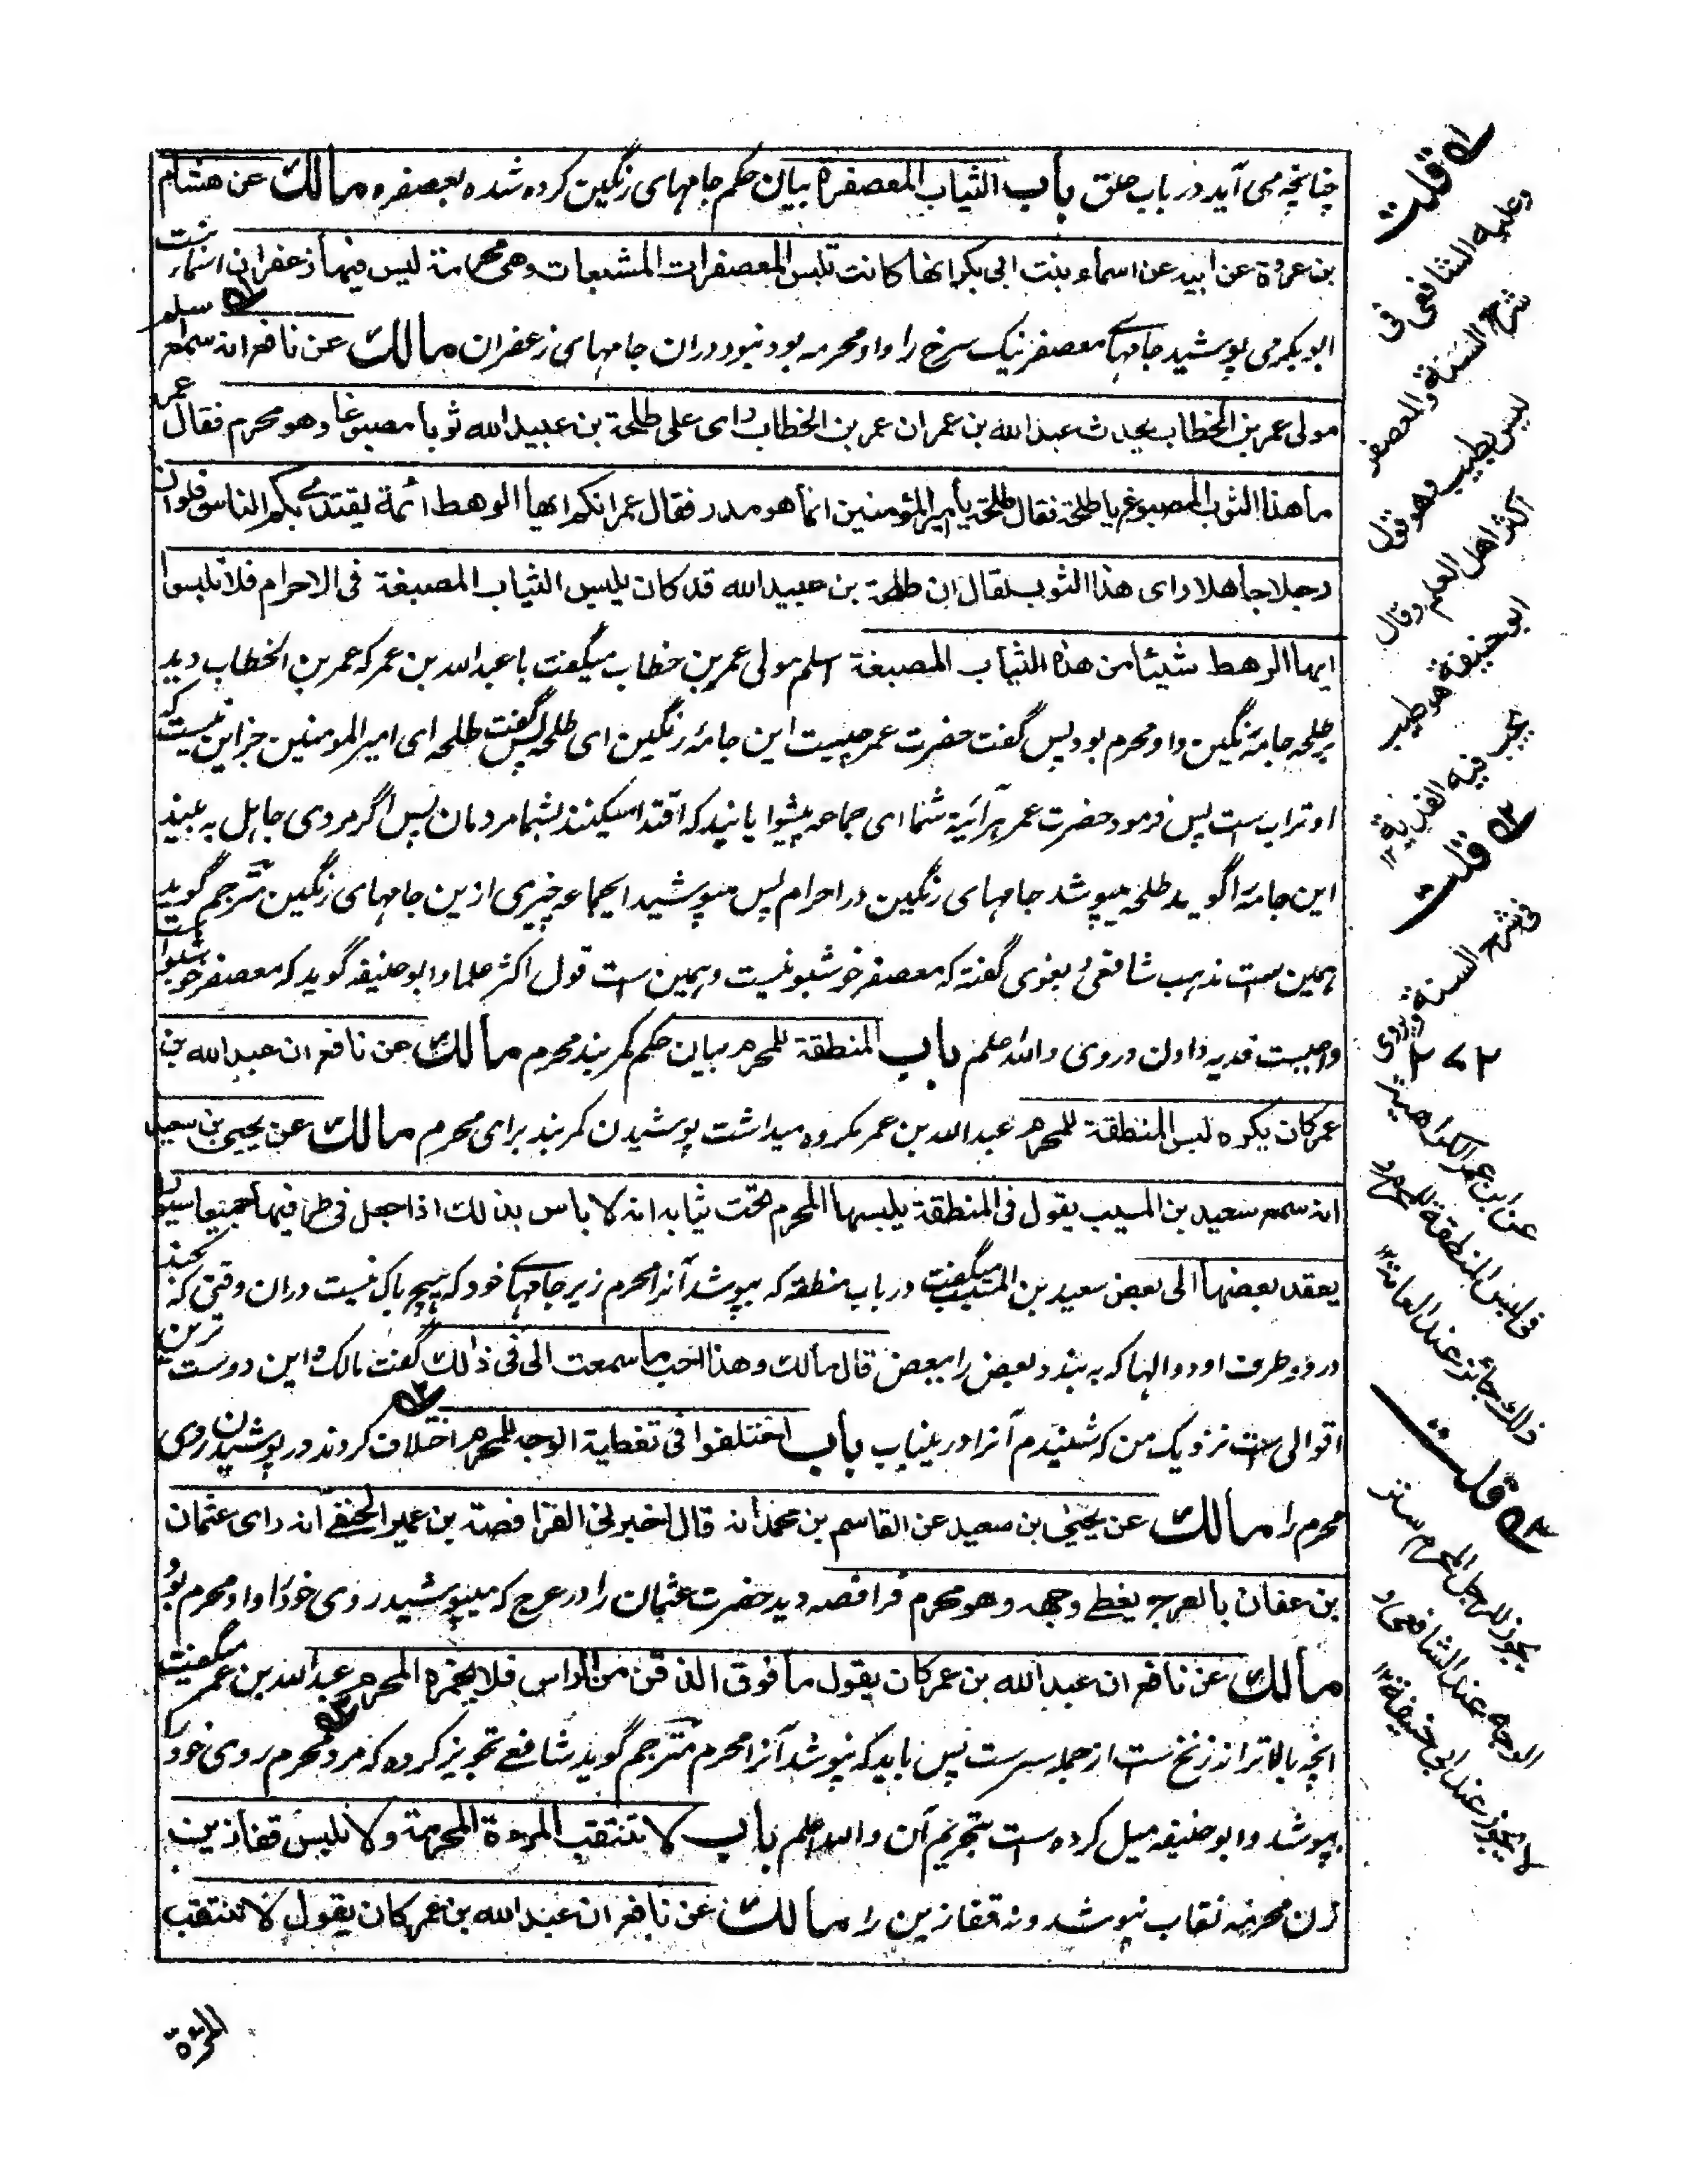 چنانچه می آید در باب حلق باب الثیاب المعصفرة بیان حکم جامهای رنگین کرده شده بعصفره مالك عن هشام
بن عروة عن ابیه عن اسماء بنت ابی بکر انها کانت تلبس المعصفرات المشبعات وهی محرمة لیس فیها زعفران اسماء بنت
ابو بکر می پوشید جامهای معصفر نیک سرخ را و او محرمه بود نبود دران جامهای زعفران مالك عن نافع انه سمع اسلم
مولی عمر بن الخطاب یحدث عبد الله بن عمر ان عمر بن الخطاب رای علی طلحة بن عبید الله ثوبا مصبوغا وهو محرم فقال عمر
ما هذا الثوب المصبوغ یا طلحة فقال طلحة یا امیر المؤمنین انما هو مدر فقال عمر انکم ایها الرهط ائمة یقتدی بکم الناس فلو ان
رجلا جاهلا رای هذا الثوب لقال ان طلحة بن عبید الله قد کان یلبس الثیاب المصبغة فی الاحرام فلا تلبسوا
ایها الرهط شیئا من هذه الثیاب المصبغة اسلم مولی عمر بن خطاب میگفت با عبد الله بن عمر که عمر بن الخطاب دید
بر طلحه جامهٔ رنگین و او محرم بود پس گفت حضرت عمر چیست این جامهٔ رنگین ای طلحه پس گفت طلحه ای امیر المومنین جز این نیست که
او تراب ست پس فرمود حضرت عمر هر آئینه شما ای جماعه پیشوایانید که اقتدا میکنند بشما مردمان پس اگر مردی جاهل به بیند
این جامه را گوید طلحه میپوشد جامهای رنگین در احرام پس مپوشید ایجماعه چیزی ازین جامهای رنگین مترجم گوید
همین ست مذهب شافعی بغوی گفته که معصفر خوشبو نیست و همین ست قول اکثر علما و ابو حنیفه گوید که معصفر خوشبو است
واجبست فدیه دادن در وی والله اعلم باب المنطقة للمحرم بیان حکم کمربند محرم مالك عن نافع ان عبد الله بن
عمر کان یکره لبس المنطقة للمحرم عبد الله بن عمر مکروه میداشت پوشیدن کمربند برای محرم مالك عن یحیی بن سعید
انه سمع سعید بن المسیب یقول فی المنطقة یلبسها المحرم تحت ثیابه انه لا باس بذلك اذا جعل فی طرفیها جمیعا سیورا
یعقد بعضها الی بعض سعید بن المسیب میگفت در باب منطقه که بپوشد آنرا محرم زیر جامهای خود که هیچ باک نیست دران وقتی که کند
در دو طرف او دوالها که به بندد بعض را ببعض قال مالك وهذا احب ما سمعت الی فی ذلك گفت مالک و این دوست ترین
اقوالی ست نزدیک من که شنیدم آنرا درینباب باب اختلفوا فی تغطیة الوجه للمحرم اختلاف کردند در پوشیدن روی
محرم را مالك عن یحیی بن سعید عن القاسم بن محمد انه قال اخبرنی الفرافصة بن عمیر الحنفی انه رای عثمان
بن عفان بالعرج یغطی وجهه وهو محرم فرافصه دید حضرت عثمان را در عرج که میپوشید روی خود را و او محرم بود
مالك عن نافع ان عبد الله بن عمر کان یقول ما فوق الذقن من الراس فلا یخمره المحرم عبد الله بن عمر میگفت
انچه بالاتر از زنخ ست از جمله سرست پس باید که نپوشد آنرا محرم مترجم گوید شافعی تجویز کرده که مرد محرم روی خود را
بپوشد و ابو حنیفه میل کرده ست بتحریم آن والله اعلم باب لا تنتقب المرءة المحرمة ولا تلبس قفازین
زن محرمه نقاب نپوشد و نه قفازین را مالك عن نافع ان عبد الله بن عمر کان یقول لا تنتقب
المرءة
۱ قلت
وعلیه الشافعی فی
شرح السنة والعصفر
لیس بطیب وهو قول
اکثر اهل العلم وقال
ابو حنیفة هو طیب
یجب فیه الفدیة ۱۲
۲ قلت
فی شرح السنة وروی
۲۷۲
عن ابن عمر الکراهیة
فی لبس المنطقة للمحرم و
ذلك جائز عند العامة ۱۲
۳ قلت
یجوز للرجل المحرم ستر
الوجه عند الشافعی و
لا یجوز عند ابی حنیفة ۱۲